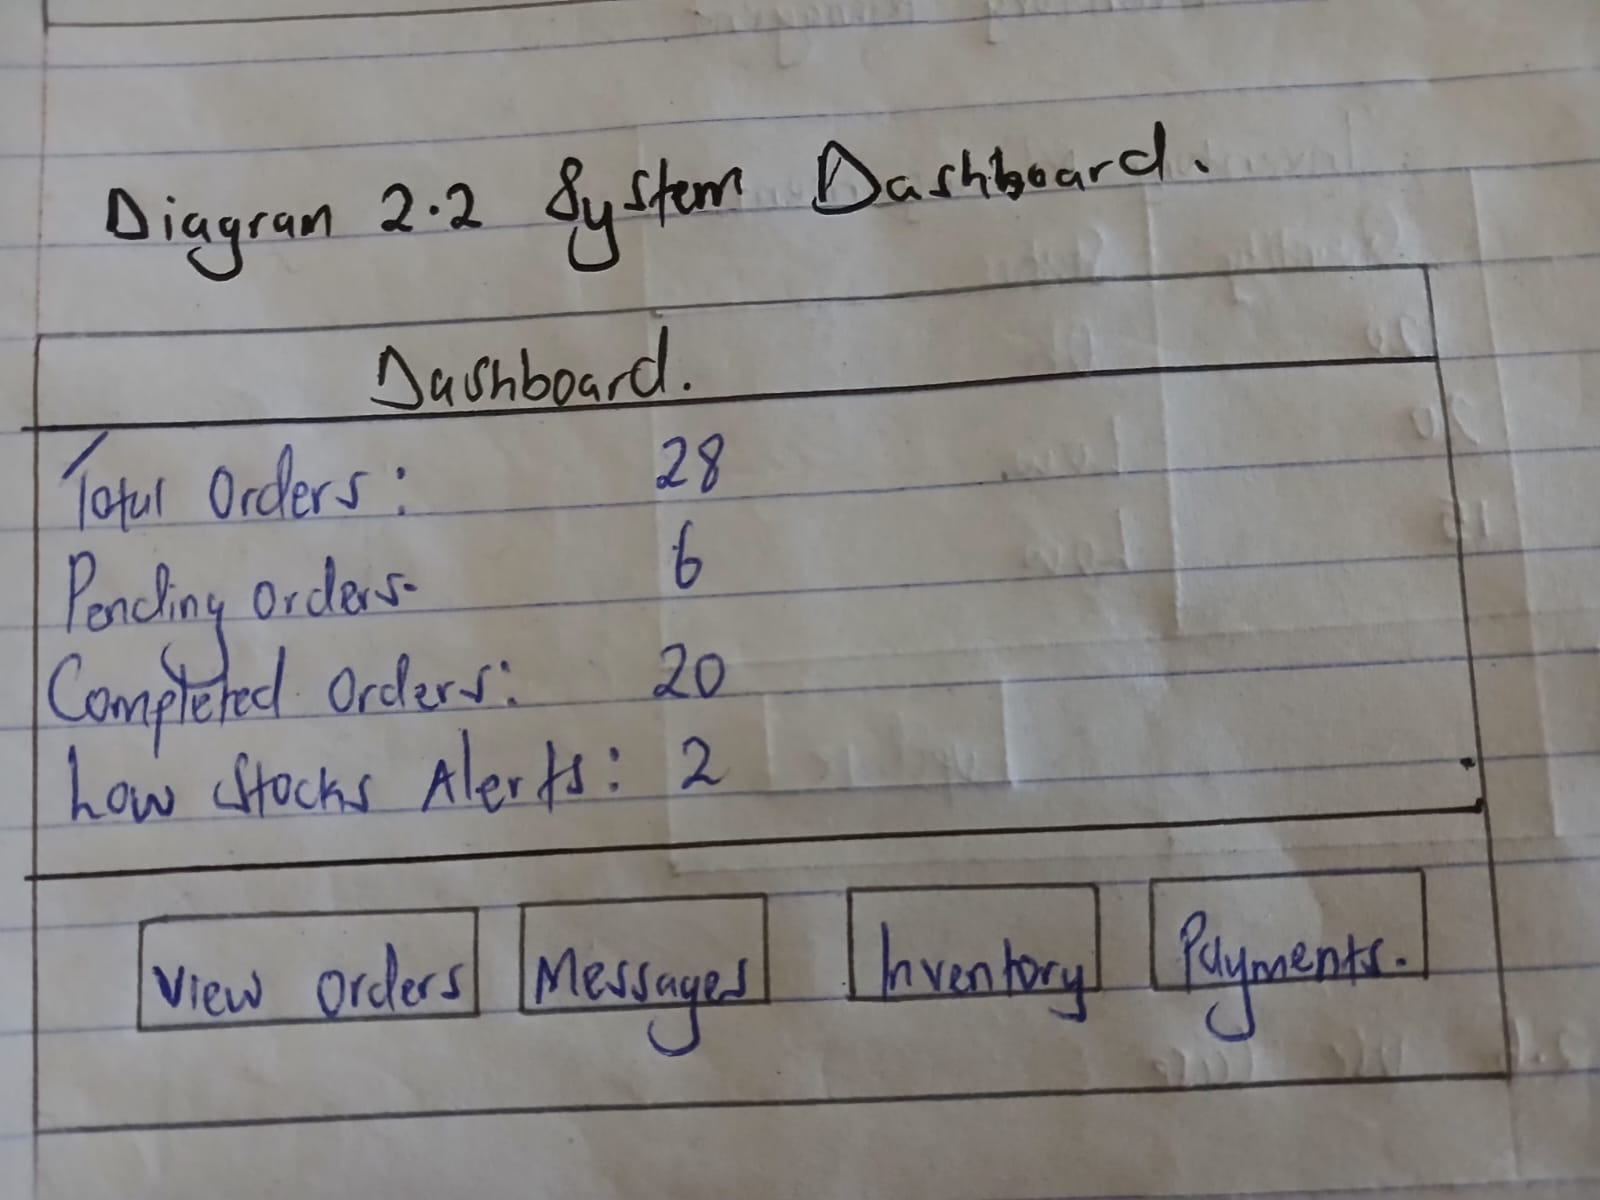 Diagram 2.2 System Dashboard.
Dashboard.
Total Orders: 28
Pending orders- 6
Completed Orders: 20
Low Stocks Alerts: 2
View Orders Messages Inventory Payments.